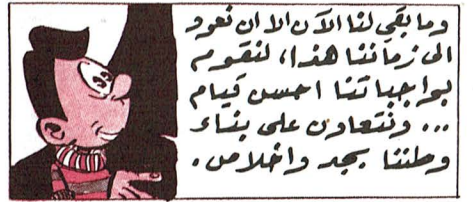 وما بقي لنا الآن الا ان نعود
الى زماننا هذا، لنقوم
بواجباتنا احسن قيام
... ونتعاون على بناء
وطننا بجد واخلاص.